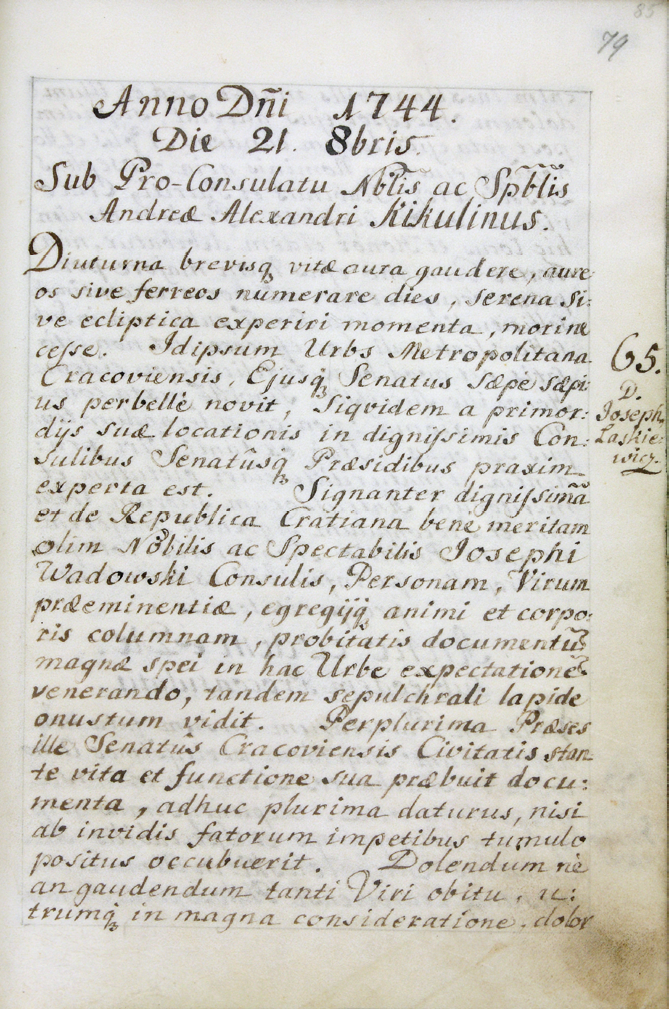 85
79
Anno Dñi 1744.
Die 21. 8bris.
Sub Pro-Consulatu Nblis ac Spblis
Andreæ Alexandri Kikulinus.
Diuturna brevisq́ vitæ aura gaudere, aure
os sive ferreos numerare dies, serena si:
ve ecliptica experiri momenta, morine
ceſse. Idipsum Urbs Metropolitana
Cracoviensis, Ejusq́ Senatus sæpe sæpi:
us perbellè novit, siqvidem a primor:
dijs suæ locationis in digniſsimis Con:
sulibus Senatûsq́ Præsidibus praxim
experta est. Signanter digniſsimã
et de Republica Cratiana bene meritam
olim Nobilis ac Spectabilis Josephi
Wadowski Consulis, Personam, Virum
præeminentiæ, egregijq́ animi et corpo:
ris columnam, probitatis documentũ
magnæ spei in hac Urbe expectatione
venerando, tandem sepulchrali lapide
onustum vidit. Perplurima Præses
ille Senatûs Cracoviensis Civitatis stan
te vita et functione sua præbuit docu:
menta, adhuc plurima daturus, nisi
ab invidis fatorum impetibus tumulo
positus occubuerit. Dolendum nè
an gaudendum tanti Viri obitu, u:
trumq́ in magna consideratione. dolor
65.
D.
Joseph
Laskie:
wicz.